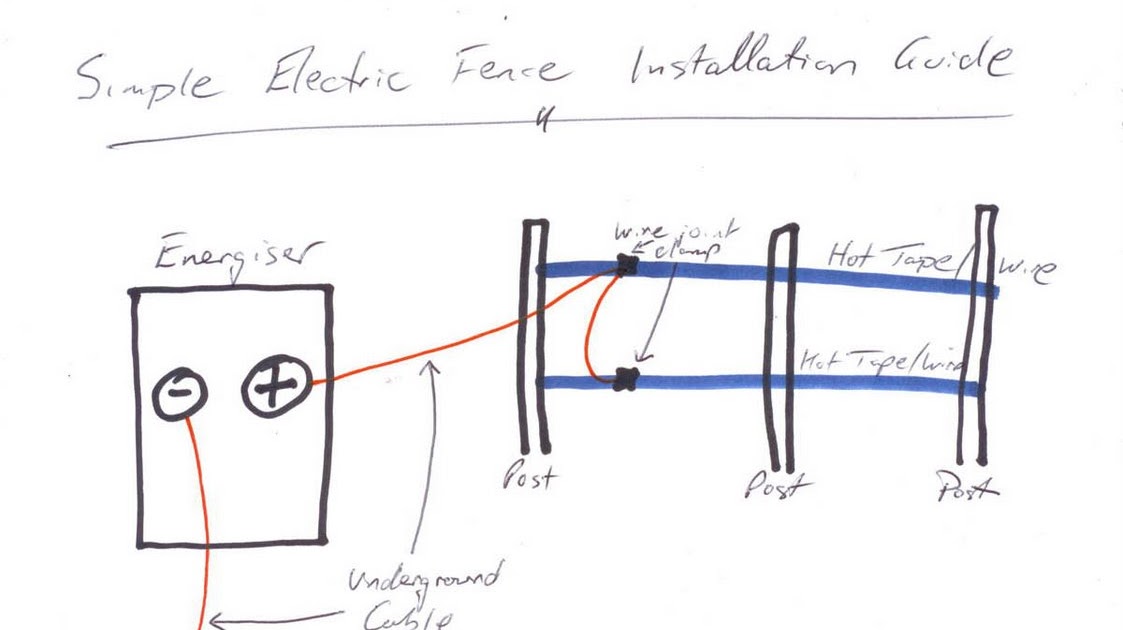 Simple Electric Fence Installation Guide
Energiser
-
+
wire joint
clamp
Hot Tape/Wire
Hot Tape/Wire
Post
Post
Post
Underground
Cable